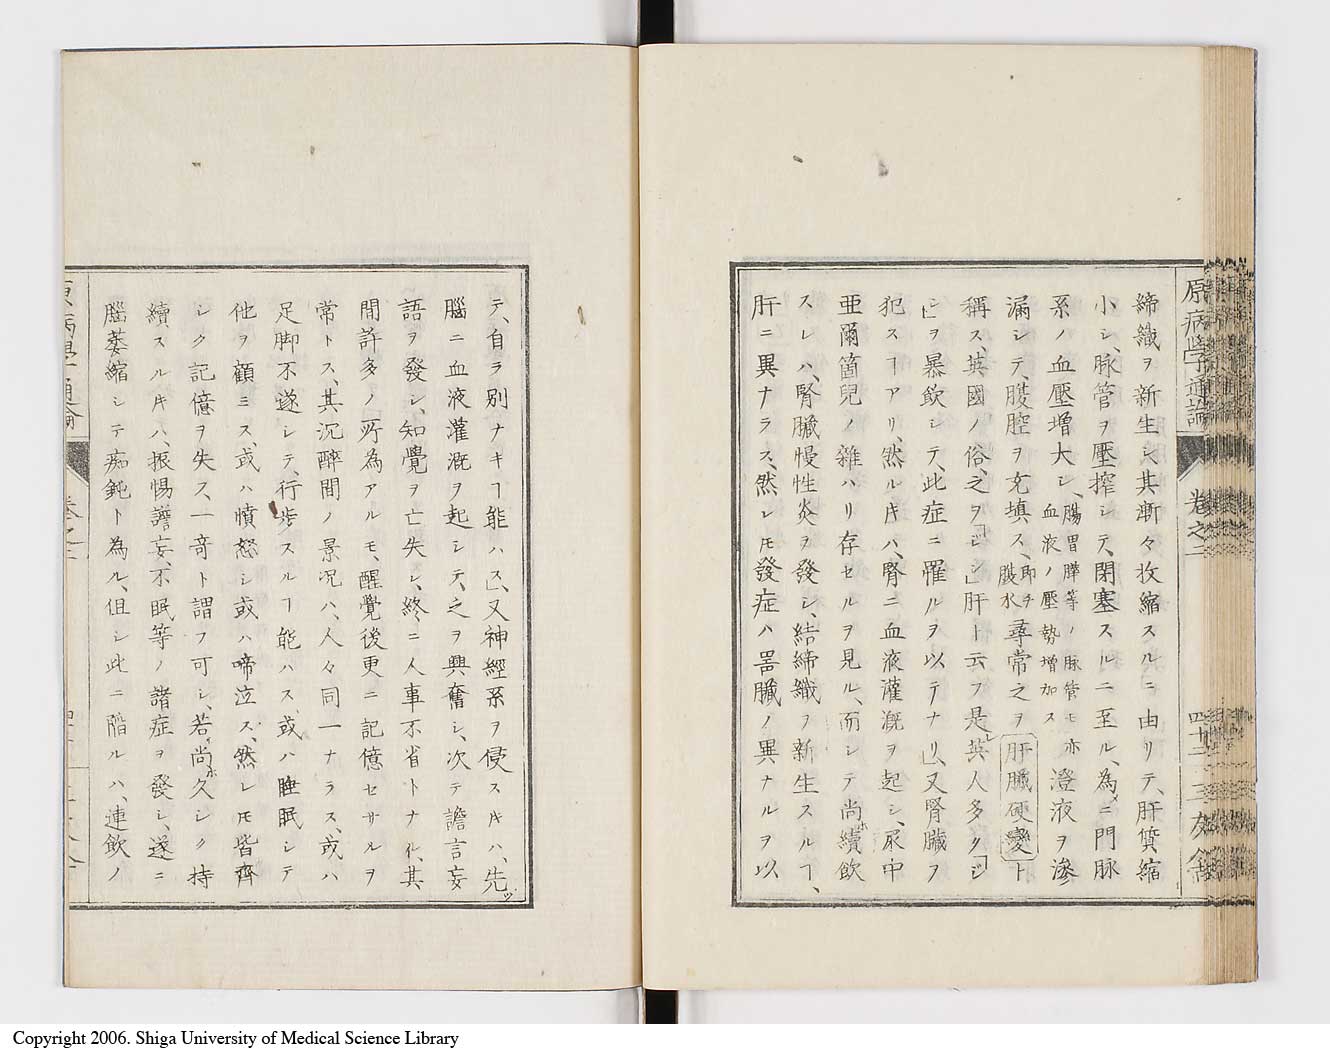 原病学通論
卷之二
四十三
三友舍
締織ヲ新生シ其漸々收縮スルニ由リテ、肝質縮
小シ、脉管ヲ壓搾シテ、閉塞スルニ至ル、為メニ門脉
系ノ血壓増大シ、腸胃脾等ノ脉管モ亦
血液ノ壓勢増加ス
澄液ヲ滲
漏シテ、腹腔ヲ充填ス、即チ
腹水
尋常之ヲ肝臓硬變ト
稱ス、英國ノ俗、之ヲ「ジン」肝ト云フ是レ英人多ク「ジ
ン」ヲ暴飲シテ、此症ニ罹ルヲ以テナリ」又腎臓ヲ
犯スヿアリ、然ルキハ、腎ニ血液灌漑ヲ起シ、尿中
亜爾箇兒ノ雜ハリ存セルヲ見ル、而シテ尚ホ續飲
スレハ、腎臓慢性炎ヲ發シ、結締織ヲ新生スルヿ、
肝ニ異ナラス、然レモ發症ハ噐臓ノ異ナルヲ以
テ、自ラ別ナキヿ能ハス」又神經系ヲ侵スキハ、先ツ
腦ニ血液灌漑ヲ起シテ、之ヲ興奮シ、次テ譫言妄
語ヲ發シ、知覺ヲ亡失シ、終ニ人事不省トナル、其
間許多ノ所為アルモ、醒覺後更ニ記億セサルヲ
常トス、其沉醉間ノ景况ハ、人々同一ナラス、或ハ
足脚不遂シテ、行歩スルヿ能ハス、或ハ睡眠シテ
他ヲ顧ミス、或ハ憤怒シ或ハ啼泣ス、然レモ皆齊
シク記億ヲ失ス、一竒ト謂フ可シ、若シ尚ホ久シク持
續スルキハ、振惕譫妄、不眠等ノ諸症ヲ發シ、遂ニ
腦萎縮シテ痴鈍ト為ル、但シ此ニ陷ルハ、連飲ノ
原病學通論